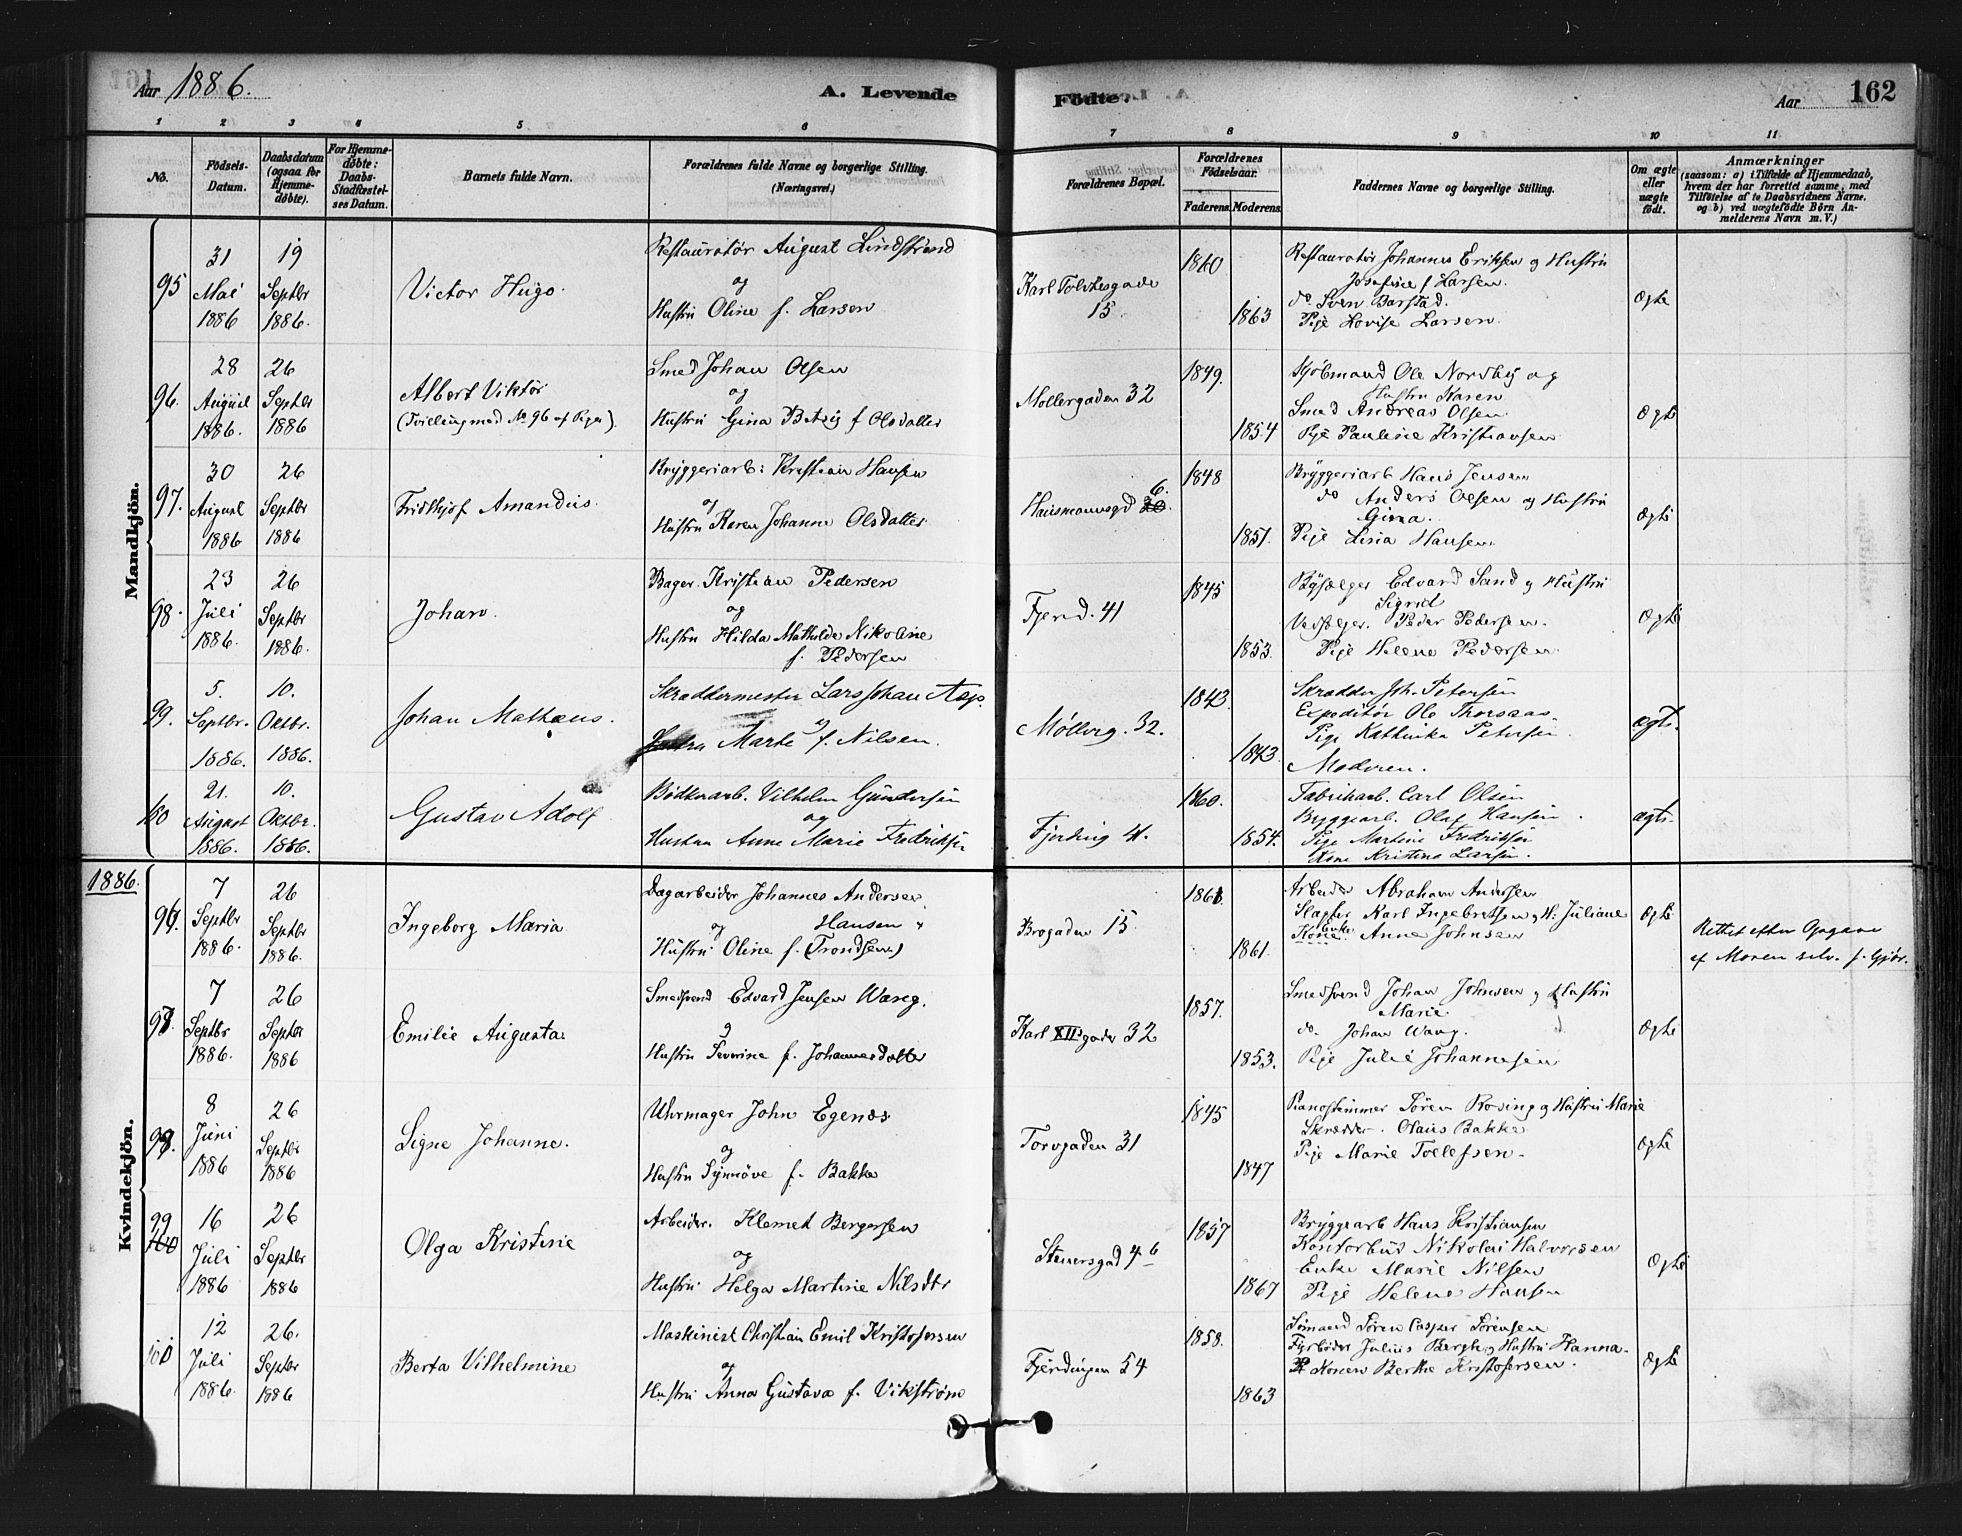 Aar 1886.
A. Levende
Födte.
Aar
162
1 2 3 4 5 6 7 8 9 10 11
No.
Födsels-Datum.
Daabsdatum (ogsaa for Hjemme-döbte).
For Hjemme-döbte: Daabs-Stadfæstel-ses Datum.
Barnets fulde Navn.
Forældrenes fulde Navne og borgerlige Stilling. (Næringsvei.)
Forældrenes Bopæl.
Forældrenes Födselsaar.
Faderens. Moderens.
Faddernes Navne og borgerlige Stilling.
Om ægte eller uægte födt.
Anmærkninger
(saasom: a) i Tilfælde af Hjemmedaab, hvem der har forrettet samme, med Tilföielse af to Daabsvidners Navne, og b) ved uægtefödte Börn Anmelderens Navn m. V.)
Mandkjön.
95
31 Mai 1886
19 Septbr 1886.
Victor Hugo.
Restauratör August Lindstrand
og
Hustru Oline f. Larsen
Karl Tolvtesgade 15.
1860
1863
Restauratör Johannes Eriksen og Hustru
Josefine f Larsen.
do Sven Barstad.
Pige Lovise Larsen.
Ægte
96.
28 August 1886.
26 Septbr 1886
Albert Viktor
(Tvilling med No 96 af Piger).
Smed Johan Olsen
og
Hustru Gina Betsy f Olsdatter
Möllergaden 32
1849.
1854
Kjöbmand Ole Nordby og
Hustru Karen
Smed Andreas Olsen.
Pige Pauline Kristiansen
Ægte
97.
30 August 1886
26 Septbr 1886
Fridthjof Amandus.
Bryggeriarb: Kristian Hansen
og
Hustru Karen Johanne Olsdatter
Hausmannsgd 6.
1848
1851.
Bryggeriarb Hans Jensen
do Anders Olsen og Hustru
Gina.
Pige Lina Hansen.
Ægte
98.
23 Juli 1886.
26 Septbr 1886.
Johan.
Bager Kristian Pedersen
og
Hustru Hilda Mathilde Nikoline
f. Pedersen
Fjerd. 41
1845
1853.
Bysælger Edvard Sand og Hustru
Sigrid
Vedsælger. Peder Pedersen.
Pige Helene Pedersen.
Ægte
99.
5. Septbr. 1886.
10. Oktbr. 1886.
Johan Mathæus.
Skræddermester Lars Johan Asp.
og
Marte f. Nilsen.
Møllerg. 32.
1843.
1843.
Skrædder Joh. Petersen
Expeditör Ole Thorsaas.
Pige Kathinka Petersen.
Moderen.
ægte.
100
21. August 1886.
10. Oktbr. 1886.
Gustav Adolf.
Bödkerarb. Vilhelm Gundersen
og
Hustru Anne Marie Fredriksen
Fjerding 41.
1860.
1854.
Fabrikarb. Carl Olsen
Bryggearb. Olaf Hansen.
Pige Martine Fredriksen
Kristine Larsen.
ægte.
1886.
Kvindekjön.
96.
7 Septbr 1886.
26 Septbr 1886.
Ingeborg Maria
Dagarbeider Johannes Andersen
og Hansen
Hustru Oline f. (Trondsen)
Brogaden 15
1861.
1861.
Arbeider Abraham Andersen
Slagter Karl Ingebretsen og H. Juliane
Enke Anne Johnsen
Ægte
Rettet efter Opgave
af Moren selv. f. Gjör.
97.
7 Septbr 1886.
26 Septbr 1886
Emilie Augusta
Smedsvend Edvard Jensen Wang.
og
Hustru Severine f. Johannesdatter
Karl XIIsgade 32
1857.
1853.
Smedsvend Johan Johnsen og Hustru
Marie.
do. Johan Wang.
Pige Julie Johannesen
Ægte
98.
8 Juni 1886
26 Septbr 1886
Signe Johanne.
Uhrmager John Egenæs
og
Hustru Synnöve f. Bakke
Torvgaden 31
1845
1847
Pianostemmer Sören Rosing og Hustru Marie
Skrædder. Olaus Bakke
Pige Marie Tollefsen.
Ægte
99
16 Juli 1886
26 Septbr 1886
Olga Kristine
Arbeider. Klemet Bergersen
og
Hustru Helga Martine Nilsdtr
Stenersgad 4 b
1857
1867
Bryggearb Hans Kristiansen
Kontorbud Nikolai Halvorsen
Enke Marie Nilsen
Pige Helene Hansen
Ægte
100
12 Juli 1886.
26. Septbr 1886
Berta Vilhelmine
Maskinist Christian Emil Kristofersen
og
Hustru Anna Gustava f. Vikström
Fjerdingen 54
1858.
1863
Sömand Sören Casper Sörensen
Fyrböder Julius Bergh og Hustru Hanna.
Konen Berthe Kristofersen.
Ægte